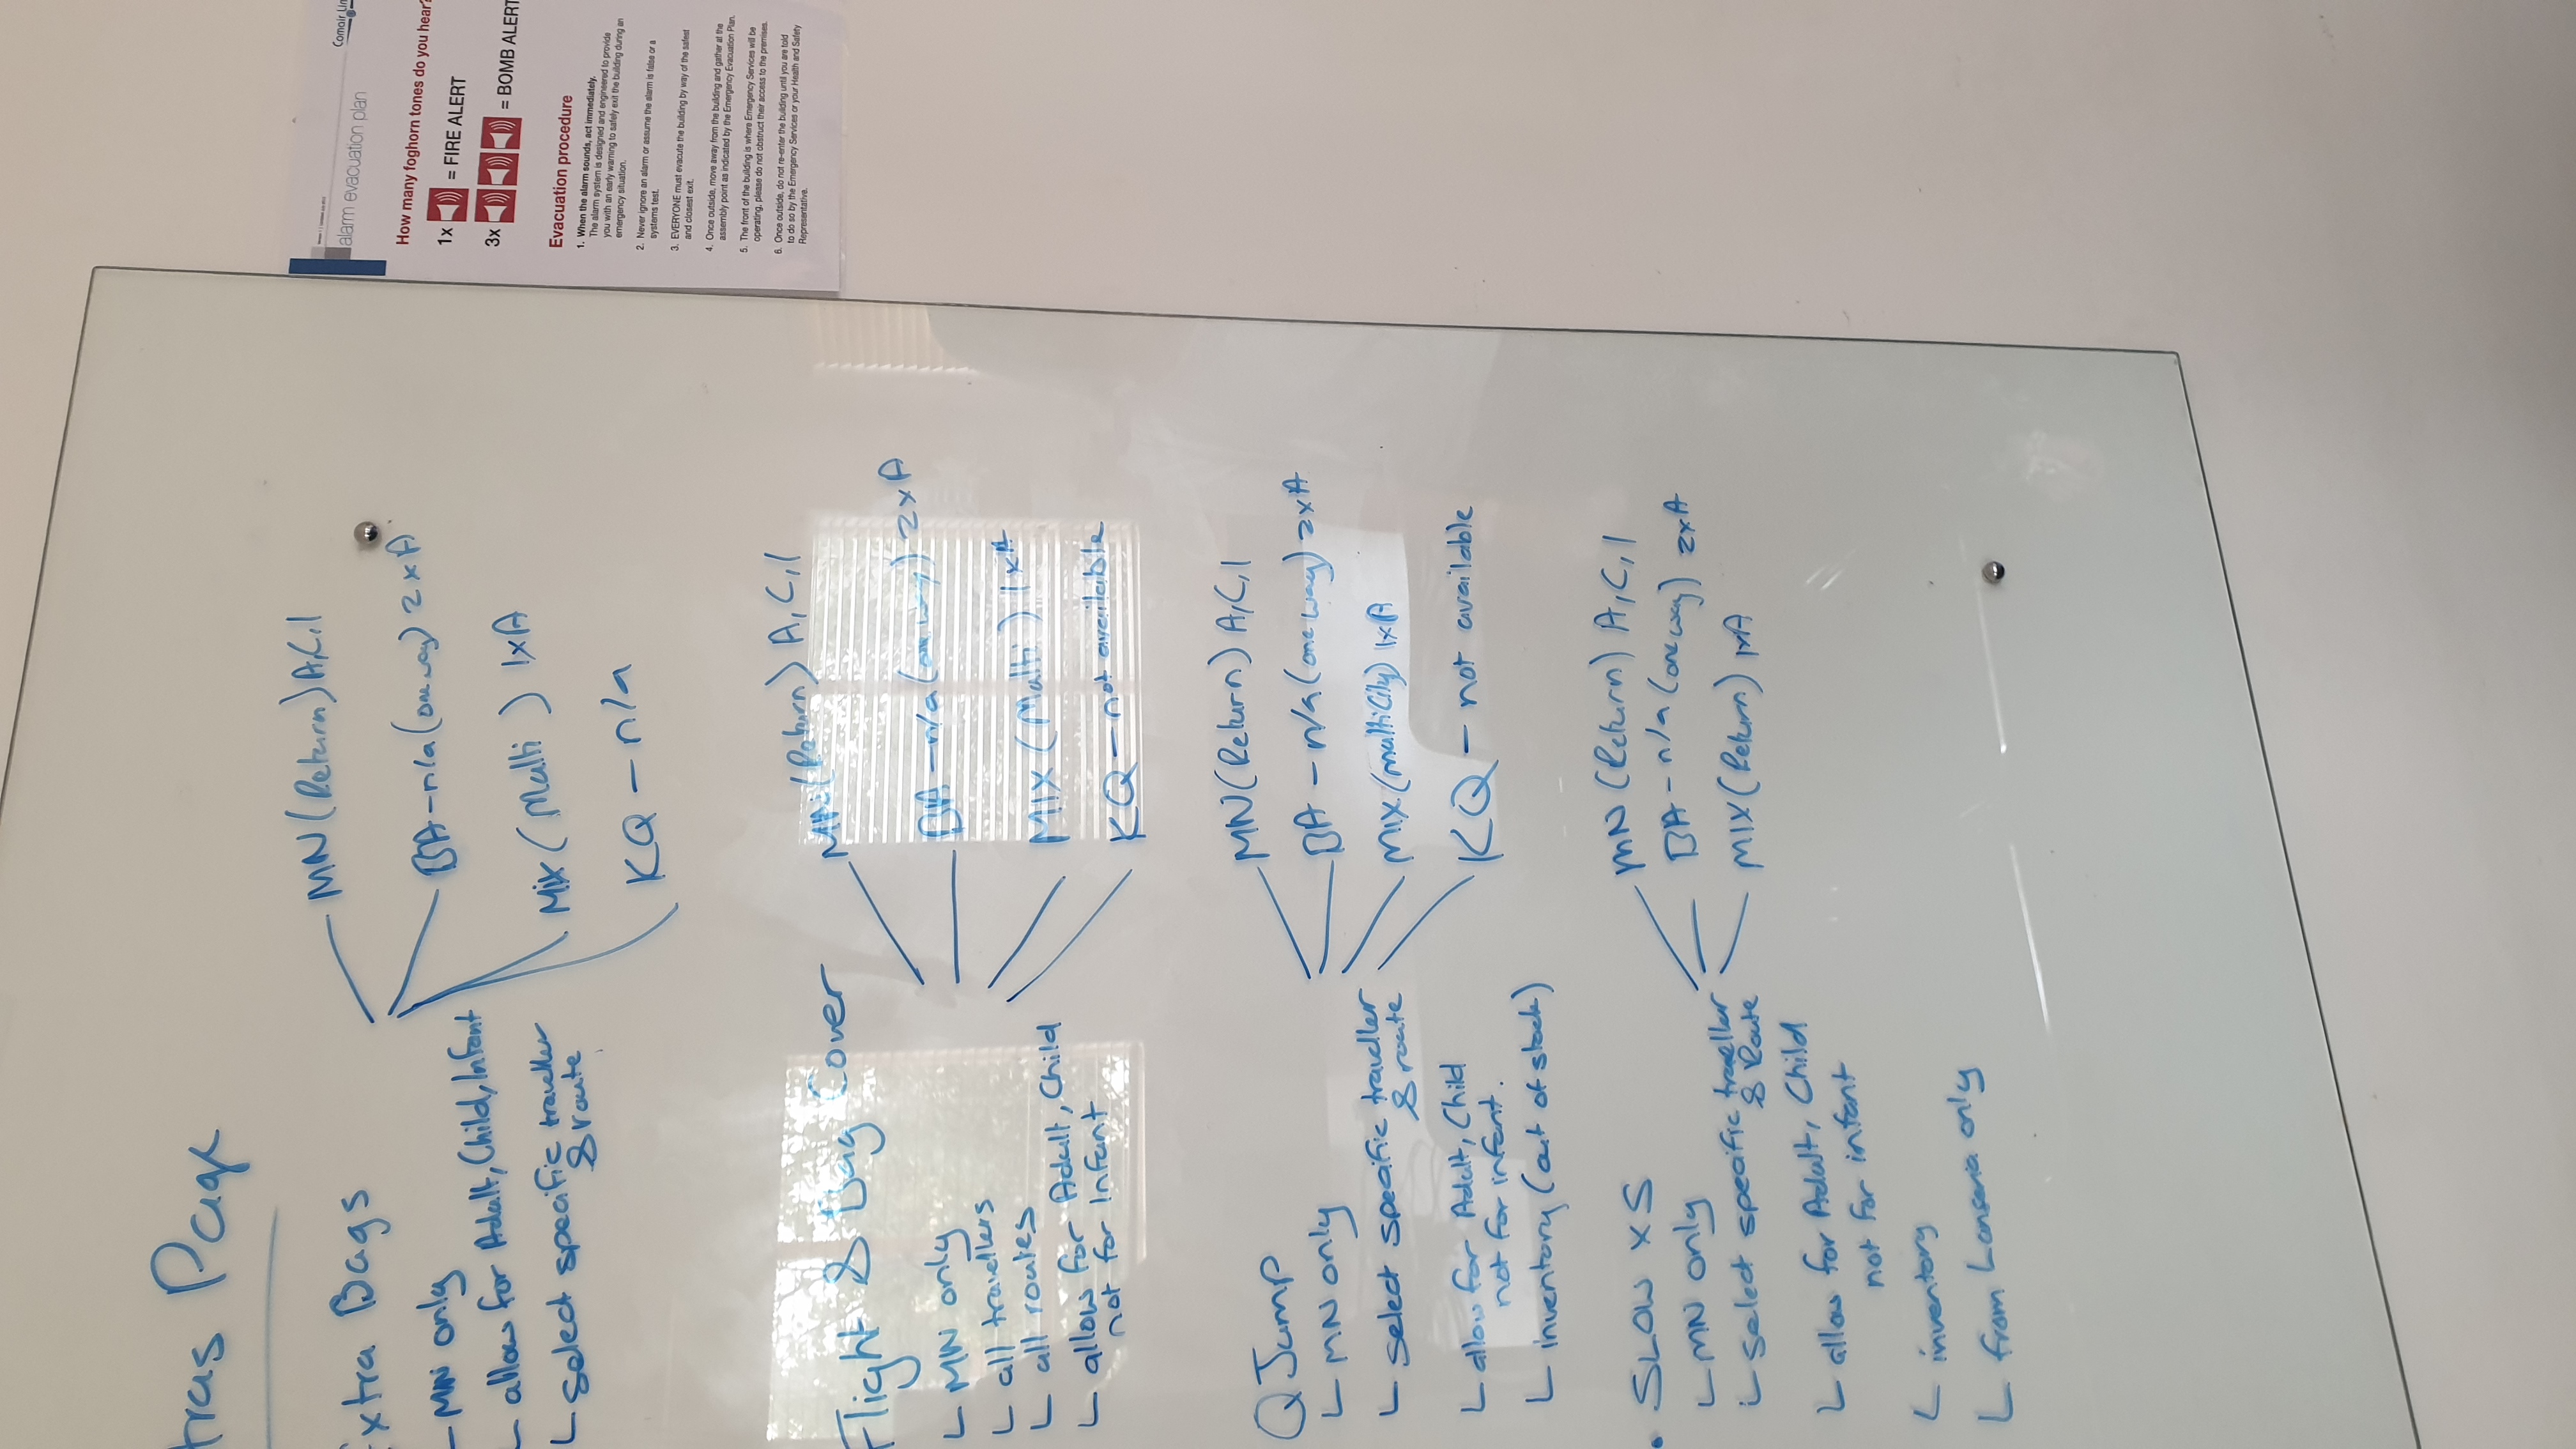 Comair Li
alarm evacuation plan
How many foghorn tones do you hear?
1x = FIRE ALERT
3x = BOMB ALERT
Evacuation procedure
1. When the alarm sounds, act immediately.
The alarm system is designed and engineered to provide
you with an early warning to safely exit the building during an
emergency situation.
2. Never ignore an alarm or assume the alarm is false or a
systems test.
3. EVERYONE must evacute the building by way of the safest
and closest exit.
4. Once outside, move away from the building and gather at the
assembly point as indicated by the Emergency Evacuation Plan.
5. The front of the building is where Emergency Services will be
operating, please do not obstruct their access to the premises.
6. Once outside, do not re-enter the building until you are told
to do so by the Emergency Services or your Health and Safety
Representative.
tras Page
Extra Bags
- MN only
- allow for Adult, Child, Infant
- Select specific traveller
& route
MN (Return) A,C,I
BA - n/a (one way) 2xA
MIX (Multi) 1xA
KQ - n/a
Flight & Bag Cover
- MN only
- all travellers
- all routes
- allow for Adult, Child
not for Infant
MN (Return) A,C,I
BA - n/a (one way) 2xA
MIX (Multi) 1xA
KQ - not available
Q Jump
- MN only
- Select specific traveller
& route
- allow for Adult, Child
not for infant.
- inventory (out of stock)
MN (Return) A,C,I
BA - n/a (one way) 2xA
MIX (multi City) 1xA
KQ - not available
• SLOW XS
- MN only
- Select specific traveller
& Route
- allow for Adult, Child
not for infant
- inventory
- from Lanseria only
MN (Return) A,C,I
BA - n/a (one way) 2xA
MIX (Return) 1xA